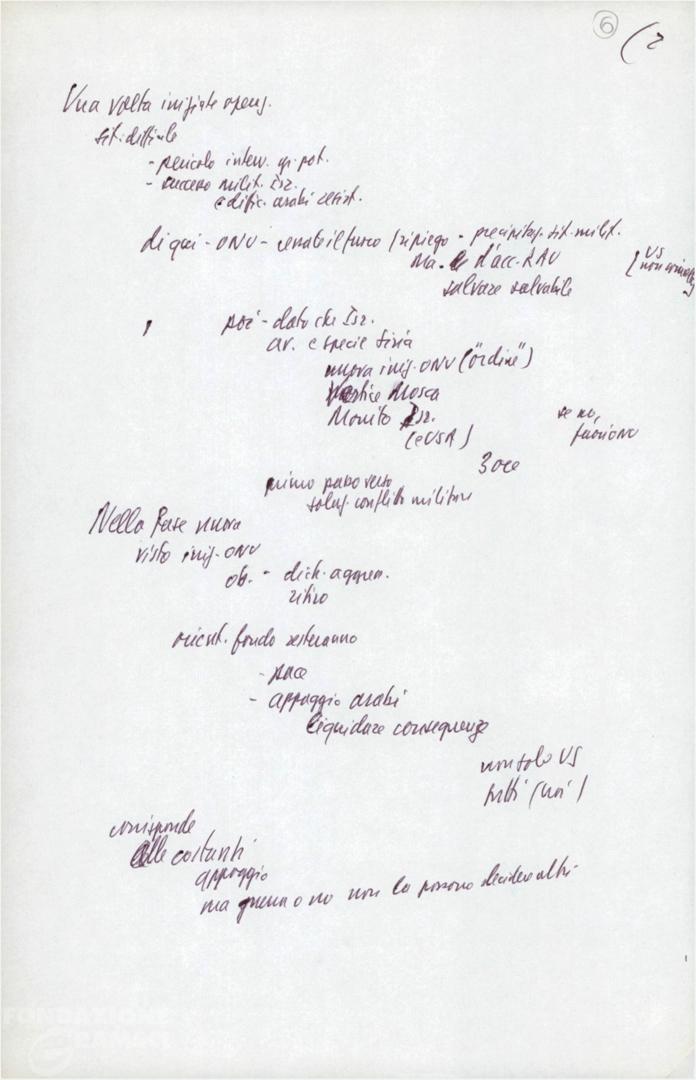 6 (2
Una volta iniziate operaz.
sit. difficile
- pericolo interv. gr. pot.
- successo milit. Isr.
e diffic. arabi resist.
di qui - ONU - cessate il fuoco (ripiego - precipitaz. sit. milit.
ma d'acc. RAU
salvare salvabile
(US
poi - dato che Isr.
av. e specie Siria
nuova iniz. ONU ("ordine")
Vertice Mosca
Monito Isr.
(e USA)
se no,
fuori ONU
3 ore
primo passo verso
soluz. conflitto militare
Nella fase nuova
visto iniz. ONU
ob. - dich. aggress.
ritiro
orient. fondo resteranno
- pace
- appoggio arabi
liquidare conseguenze
non solo US
tutti (noi)
corrisponde
alle costanti
appoggio
ma guerra o no non la possono decidere altri
FONDAZIONE
GRAMSCI